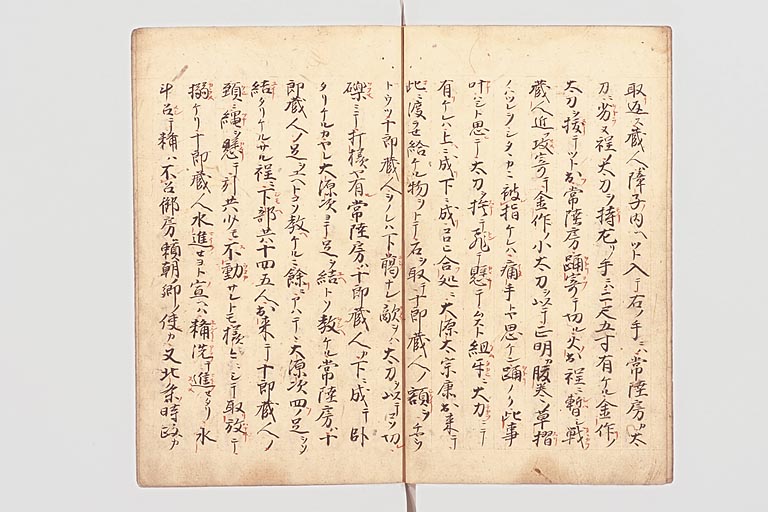 取返ス蔵人障子内ヘツト入テ右ノ手ニハ常陸房カ太
刀ニ劣ヌ程ノ太刀ヲ持左ノ手ニハ二尺五寸有ケル金作ノ
太刀抜テソト出常陸房踊寄テ切ル火出程ニ暫シ戦
蔵人近ク攻寄テ金作ノ小太刀ヲ以テ正明カ腹巻ノ草摺
ノハツレヲシタヽカニ被指ケレハ痛手トヤ思ケン踊ノク此事
叶ハシト思テ太刀ヲ捨テ飛テ懸テムスト組互ニ大力ニテ
有ケレハ上ニ成下ニ成コロヒ合処ニ大源太宗康出来テ
此ニ渡セ給ケル物ヲトテ石ヲ取テ十郎蔵人ノ額ヲチヤウ
トウツ十郎蔵人シレハ下臈ナレ敵ヲハ太刀ヲ以テコソ切
礫ニテ打様ヤ有常陸房ハ十郎蔵人カ下ニ成テ臥
タリケルカヤレ大源次ヨテ足ヲ結トソ教ケル常陸房十
郎蔵人ノ足ヲユヘトコソ教ケルニ余ニアハテヽ大源次四ノ足ヲソ
結タリケルサル程ニ下部共十四五人出来テ十郎蔵人ノ
頭ニ縄ヲ懸テ引共少モ不動サレトモ様〻ニシテ取放テ
搦ケリ十郎蔵人水進セヨト宣ヘハ糒洗テ進セタリ水
斗召テ糒ハ不召御房頼朝卿ノ使カ又北条時政カ